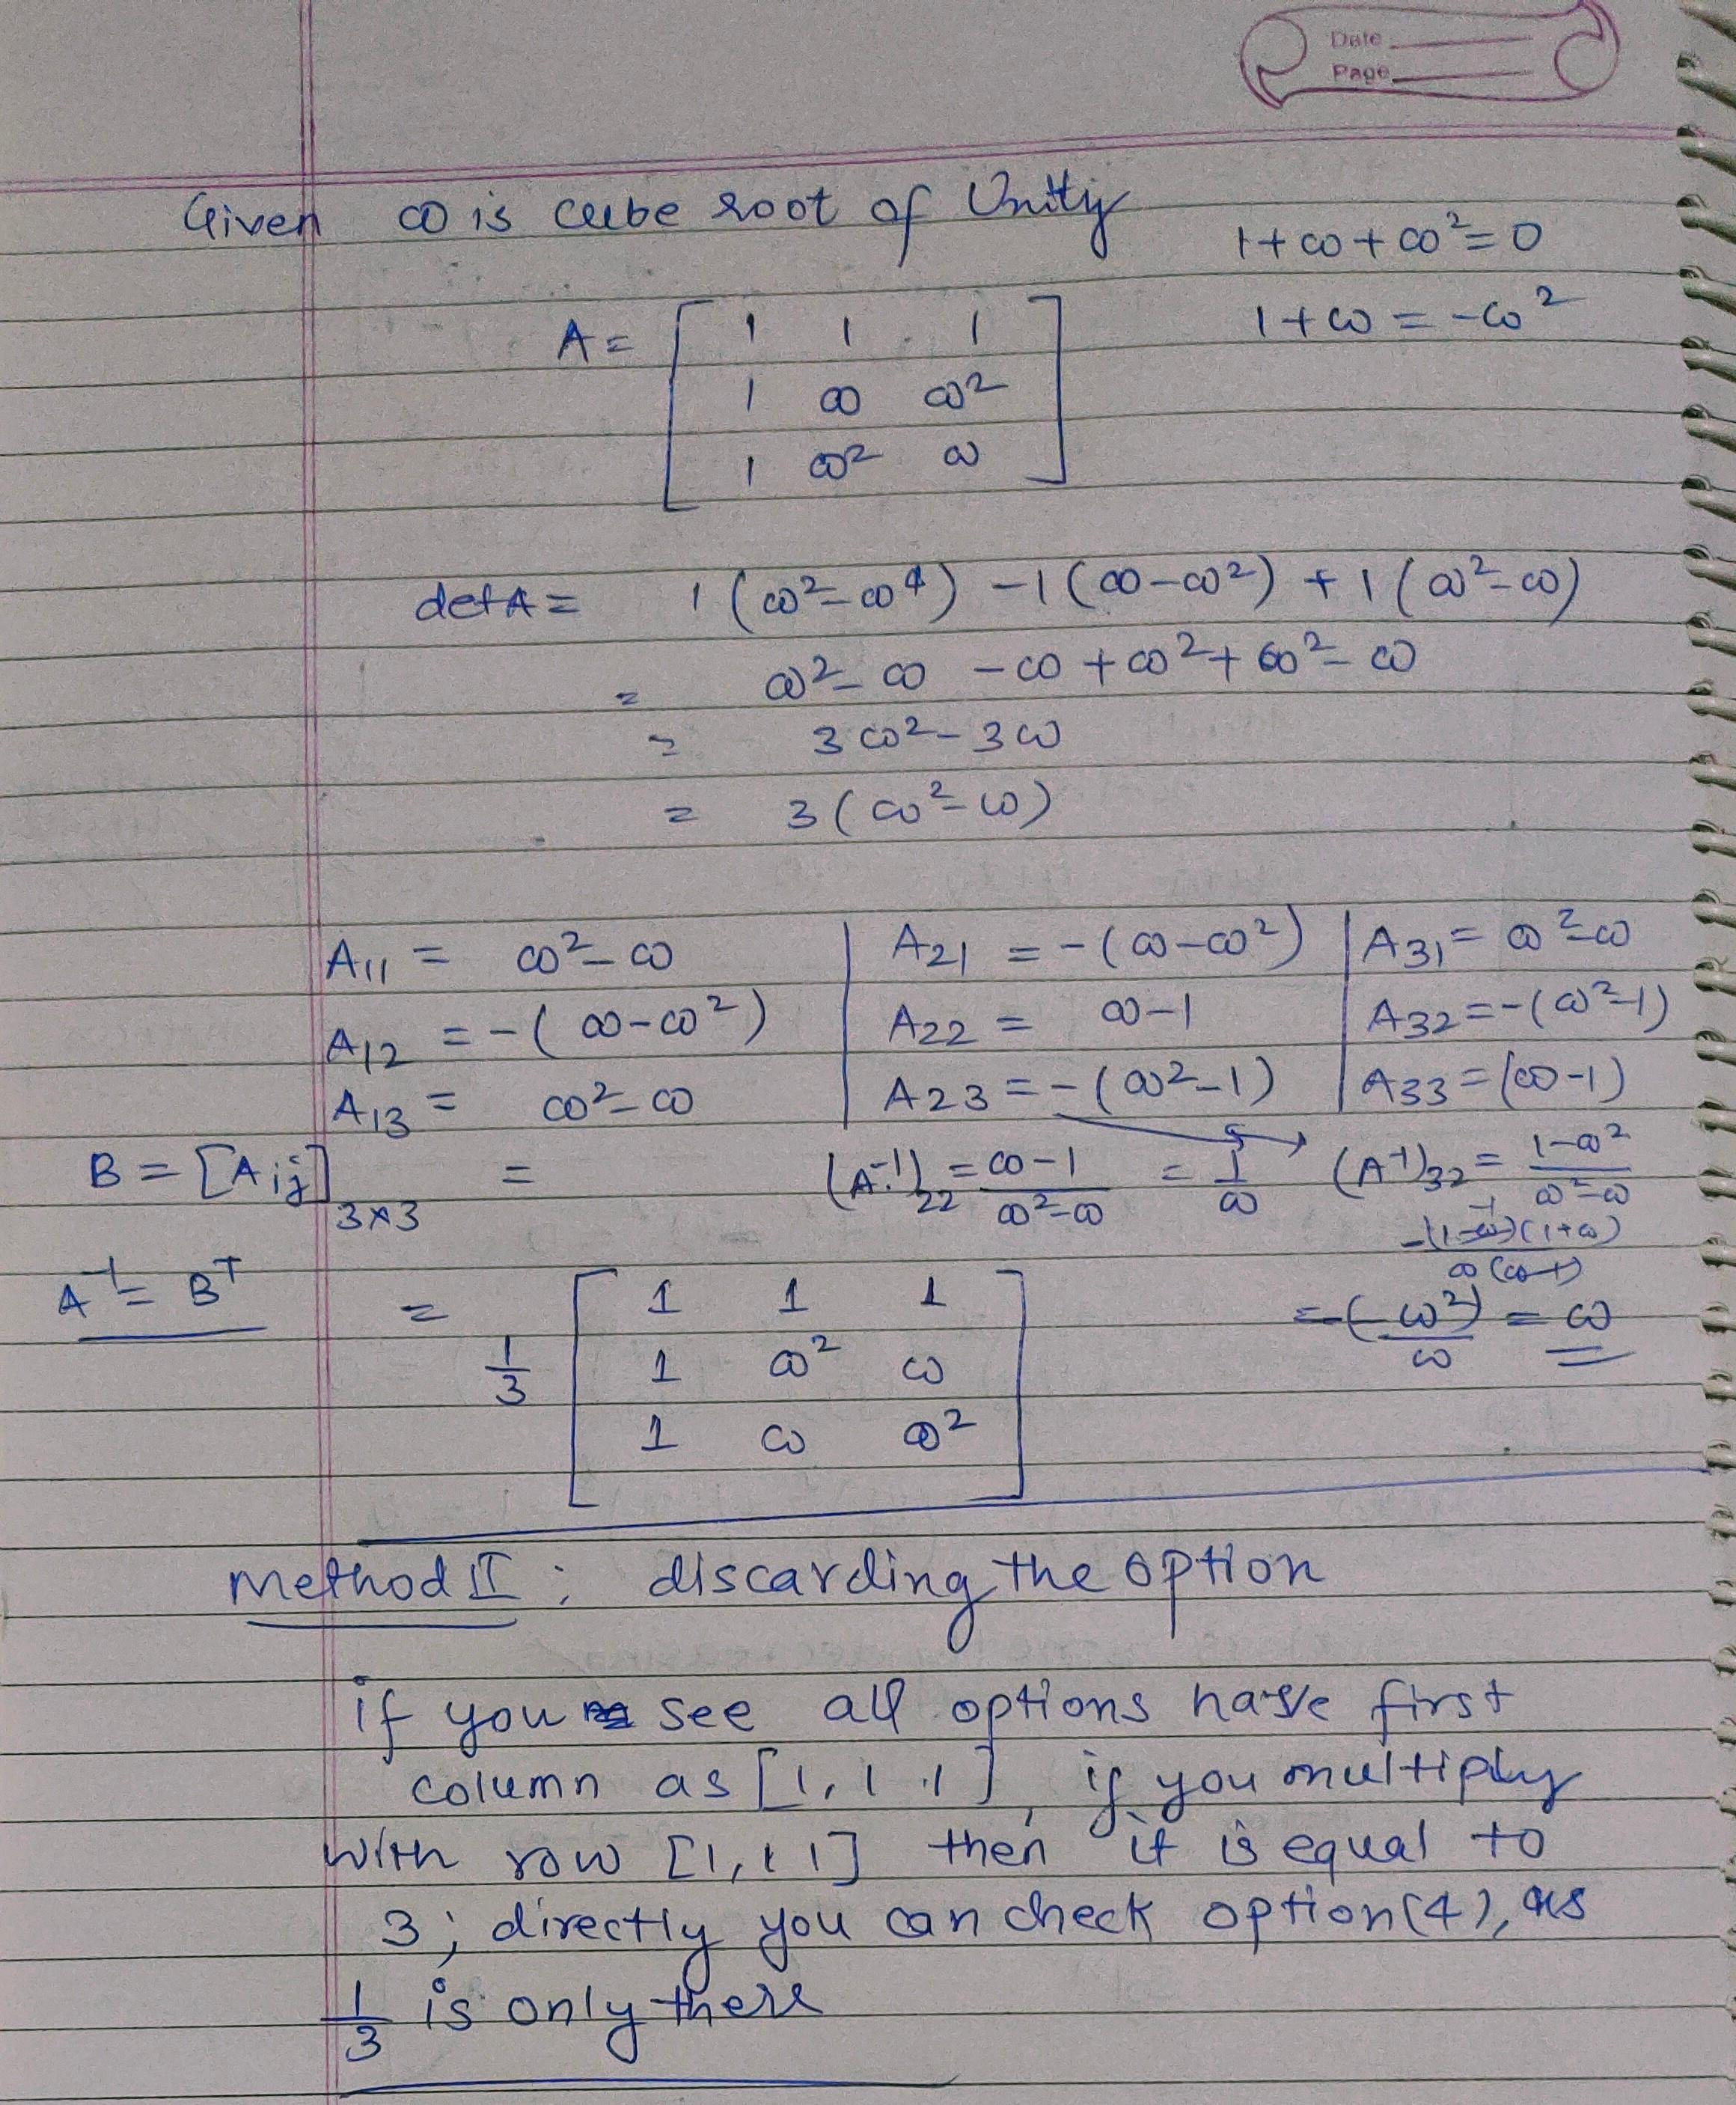 Date
Page
Given ω is cube root of Unity
1+ω+ω²=0
1+ω = -ω²
A = [ 1 1 1
1 ω ω²
1 ω² ω ]
detA = 1(ω²-ω⁴) -1(ω-ω²) + 1(ω²-ω)
= ω²-ω -ω+ω²+ω²-ω
= 3ω²-3ω
= 3(ω²-ω)
A₁₁ = ω²-ω | A₂₁ = -(ω-ω²) | A₃₁ = ω²-ω
A₁₂ = -(ω-ω²) | A₂₂ = ω-1 | A₃₂ = -(ω²-1)
A₁₃ = ω²-ω | A₂₃ = -(ω²-1) | A₃₃ = (ω-1)
B = [Aij]₃ₓ₃ = (A⁻¹)₂₂ = ω-1/ω²-ω = 1/ω (A⁻¹)₃₂ = 1-ω²/ω²-ω
A⁻¹ = Bᵀ = 1/3 [ 1 1 1
1 ω² ω
1 ω ω² ]
= -(-ω²)/ω = ω
Method II : discarding the option
if you see all options have first
column as [1, 1 1], if you multiply
with row [1, 1 1] then it is equal to
3; directly you can check option(4), as
1/3 is only there